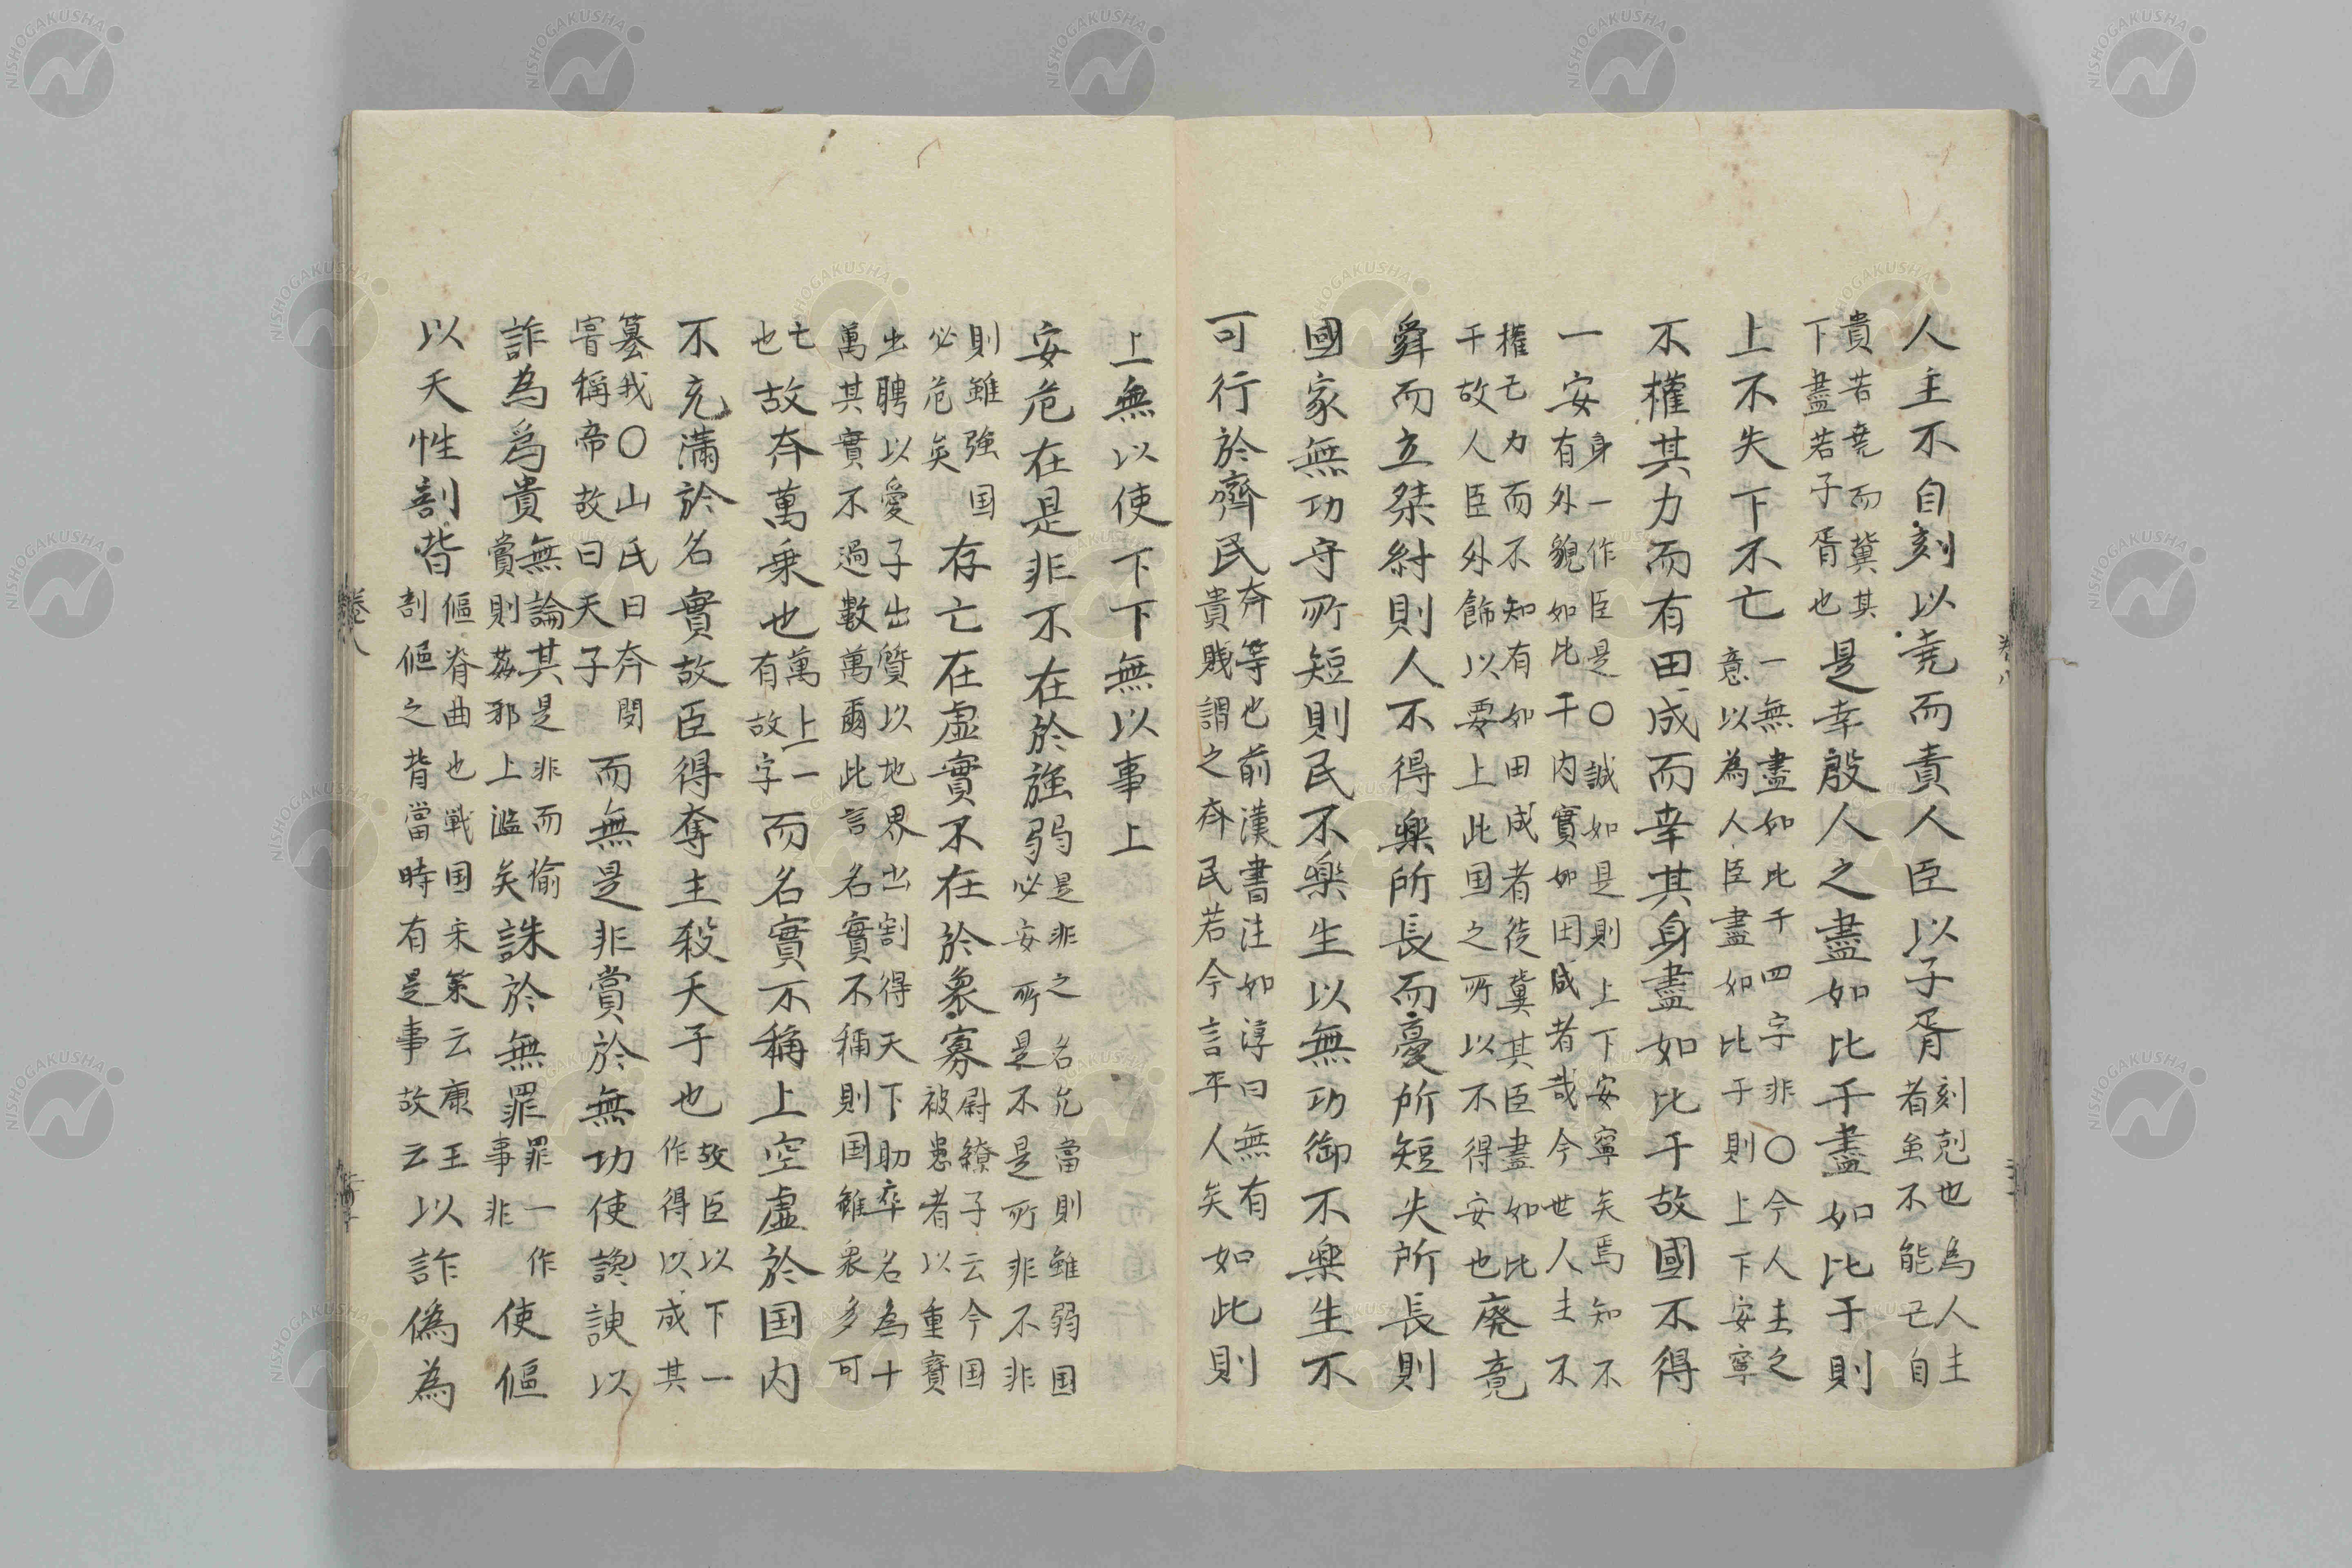 人主不自刻以堯而責人臣以子胥 刻剋也為人主者虽不能己自
貴若堯而冀其下盡若子胥也 是幸殷人之盡如比干盡如比于則
上不失下不亡 一無盡如比干四字非○今人主之意以為人臣盡如比于則上下安寧
不權其力而有田成而幸其身盡如比干故國不得
一安 身一作臣是○誠如是則上下安寧矣焉知不有外貌如比干内實如田成者哉今世人主不
權己力而不知有如田成者徒冀其臣盡如比干故人臣外飾以要上此国之所以不得安也 廃堯
舜而立桀紂則人不得樂所長而憂所短失所長則
國家無功守所短則民不樂生以無功御不樂生不
可行於齊民 斉等也前漢書注如淳曰無有貴賎謂之斉民若今言平人矣 如此則
上無以使下下無以事上
安危在是非不在於強弱 是非之名允當則雖弱国必安所是不是所非不非
則雖強国必危矣 存亡在虚實不在於衆寡 尉繚子云今国被患者以重寳
出聘以愛子出質以地界出割得天下助卒名為十萬其實不過數萬爾此言名實不稱則国雖衆多可
亡也 故斉萬乗也 萬上一有故字 而名實不稱上空虚於国内
不充満於名實故臣得奪主殺天子也 故臣以下一作得以成其
簒我○山氏曰斉閔甞稱帝故曰天子 而無是非賞於無功使讒諛以
詐為為貴 無論其是非而偷賞則茲邪上濫矣 誅於無罪 罪一作事非 使傴
以天性剖背 傴脊曲也戦国宋策云康王剖傴之背當時有是事故云 以詐偽為
巻八
巻八